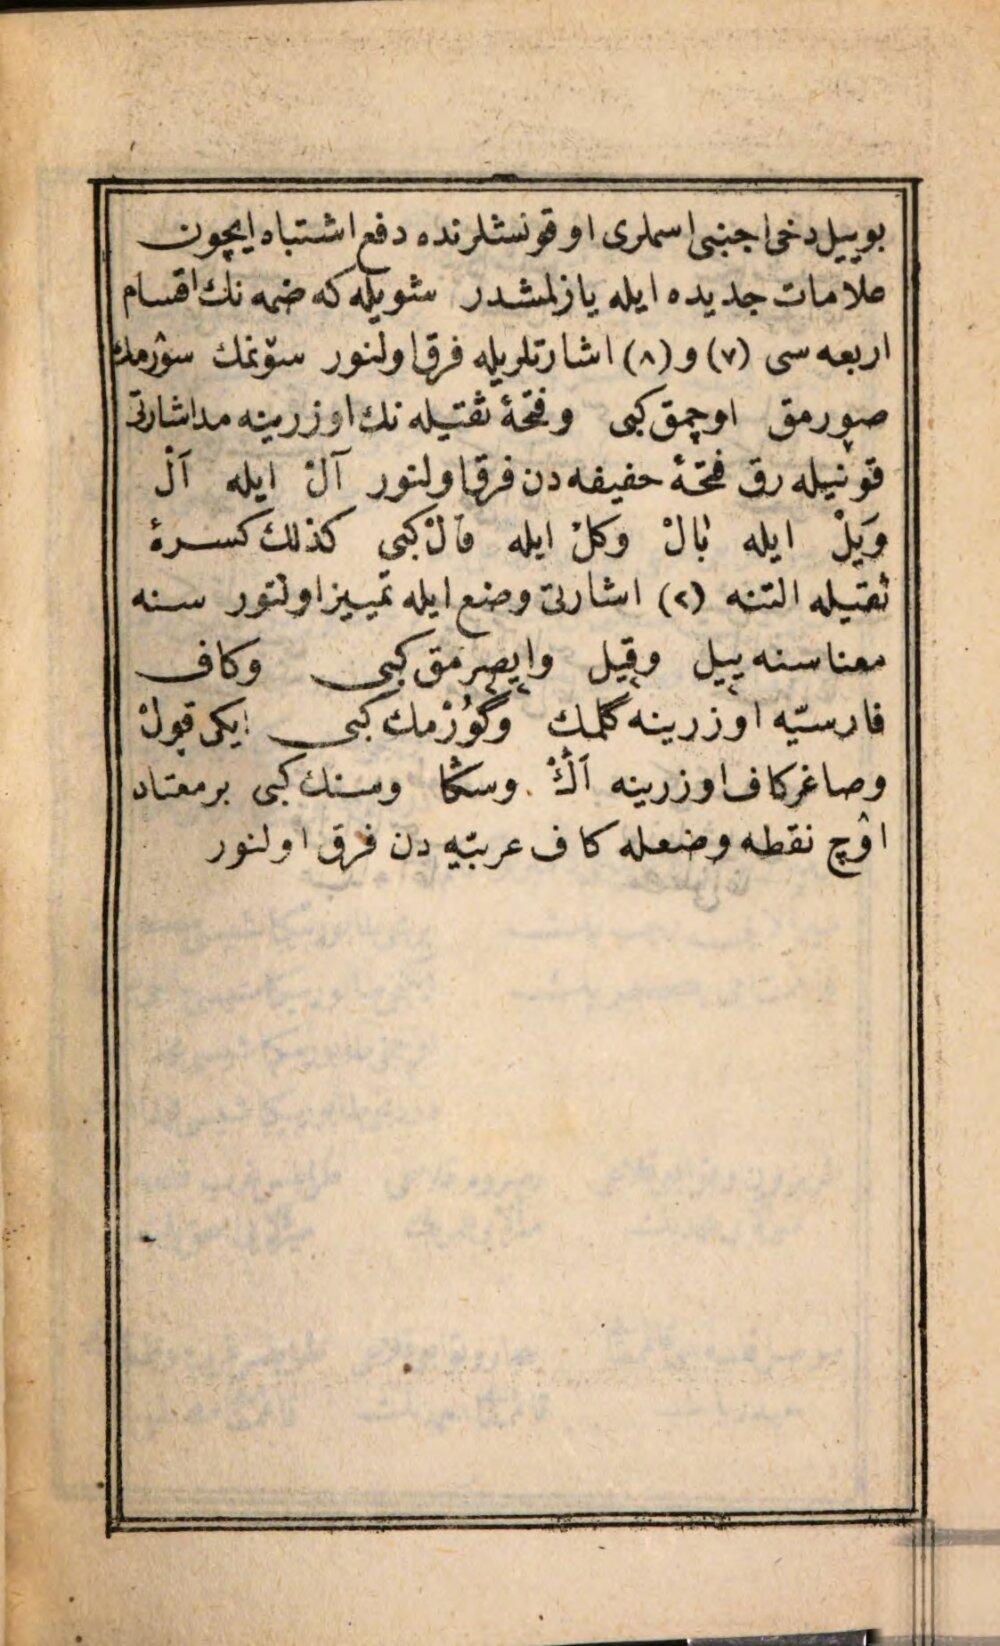 بو ییل دخی اجنبی اسملری اوقونشلرنده دفع اشتباه ایچون
علامات جدیده ایله یازلمشدر شویله که ضمه نك اقسام
اربعه سی (٧) و (٨) اشارتلریله فرق اولنور سوٚنمك سوٚرمك
صورمق اوچمق کبی و فتحهٔ ثقیله نك اوزرینه مد اشارتی
قونیله رق فتحهٔ خفیفه دن فرق اولنور آلْ ایله اَلْ
وَیَلْ ایله بَالْ وکَلْ ایله قَالْ کبی کذلك کسرهٔ
ثقیله التنه (٢) اشارتی وضع ایله تمییز اولنور سنه
معناسنه ییل وقیل وایصرمق کبی وکاف
فارسیّه اوزرینه گلمك وگوُرْمك کبی ایکی قولْ
وصاغر کاف اوزرینه اَڭْ وسڭا ومنڭ کبی بر معتاد
اوٚچ نقطه وضعله کاف عربیّه دن فرق اولنور